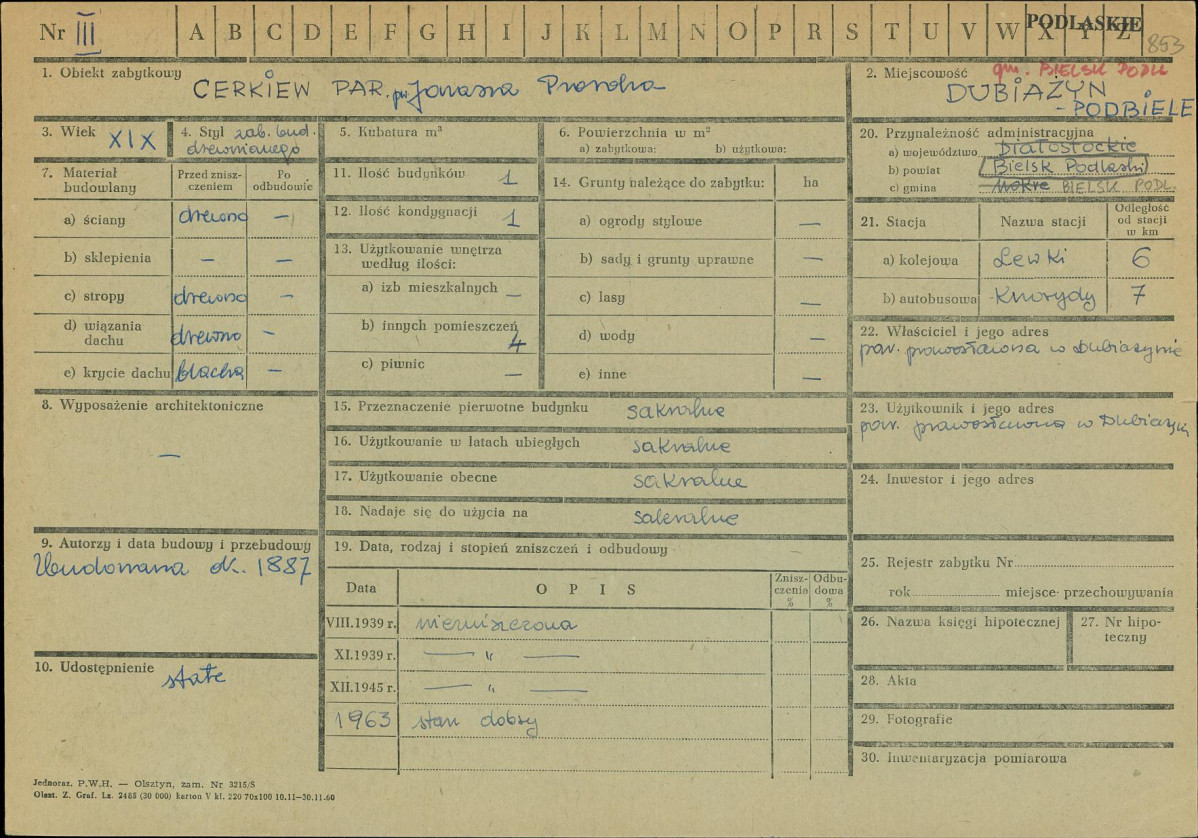 Nr III A B C D E F G H I J K L M N O P R S T U V W X Y Z PODLASKIE
853
1. Obiekt zabytkowy CERKIEW PAR. pw Jonasza Proroka
2. Miejscowość gm. BIELSK PODL
DUBIAŻYN
- PODBIELE
3. Wiek XIX
4. Styl zab. bud.
drewnianego
5. Kubatura m³
6. Powierzchnia w m²
a) zabytkowa: b) użytkowa:
20. Przynależność administracyjna
a) województwo Białostockie
b) powiat Bielsk Podlaski
c) gmina Mokre BIELSK PODL.
7. Materiał budowlany
Przed znisz-
czeniem
Po
odbudowie
a) ściany drewno —
b) sklepienia — —
c) stropy drewno —
d) wiązania
dachu drewno —
e) krycie dachu blacha —
11. Ilość budynków 1
12. Ilość kondygnacji 1
13. Użytkowanie wnętrza
według ilości:
a) izb mieszkalnych —
b) innych pomieszczeń 4
c) piwnic —
14. Grunty należące do zabytku: ha
a) ogrody stylowe —
b) sady i grunty uprawne —
c) lasy —
d) wody —
e) inne —
21. Stacja Nazwa stacji
Odległość
od stacji
w km
a) kolejowa Lewki 6
b) autobusowa Knorydy 7
22. Właściciel i jego adres
par. prawosławna w Dubiażynie
23. Użytkownik i jego adres
par. prawosławna w Dubiażyn
24. Inwestor i jego adres
8. Wyposażenie architektoniczne
—
15. Przeznaczenie pierwotne budynku sakralne
16. Użytkowanie w latach ubiegłych sakralne
17. Użytkowanie obecne sakralne
18. Nadaje się do użycia na sakralne
9. Autorzy i data budowy i przebudowy
Zbudowana ok. 1887
10. Udostępnienie stałe
19. Data, rodzaj i stopień zniszczeń i odbudowy
Data OPIS
Znisz-
czenia
%
Odbu-
dowa
%
VIII.1939 r. niezniszczona
XI.1939 r. — " —
XII.1945 r. — " —
1963 stan dobry
25. Rejestr zabytku Nr
rok miejsce przechowywania
26. Nazwa księgi hipotecznej
27. Nr hipo-
teczny
28. Akta
29. Fotografie
30. Inwentaryzacja pomiarowa
Jednoraz. P.W.H. — Olsztyn, zam. Nr 3215/S
Olszt. Z. Graf. Lz. 2488 (30 000) karton V kl. 220 70x100 10.11—30.11.60